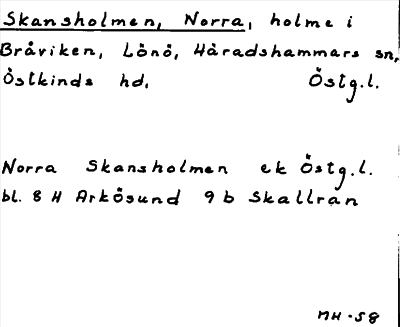 Skansholmen, Norra, holme i
Bråviken, Lönö, Häradshammars sn,
Östkinds hd, Östg.l.
Norra Skansholmen ek Östg.l.
bl. 8 H Arkösund 9 b Skallran
MH-58